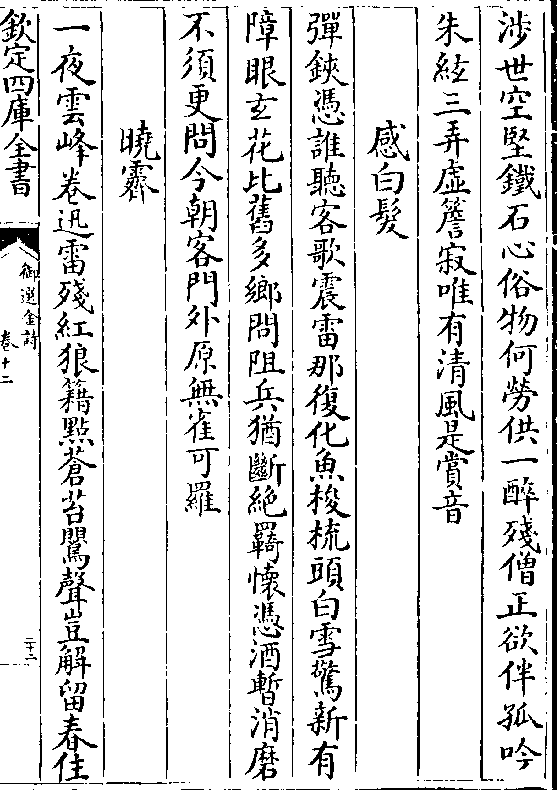 涉世空堅鐵石心俗物何勞供一醉殘僧正欲伴孤吟
朱絃三弄虛簷寂唯有清風是賞音
感白髮
彈鋏憑誰聽客歌震雷那復化魚梭梳頭白雪驚新有
障眼玄花比舊多鄉問阻兵猶斷絶羇懷憑酒暫消磨
不須更問今朝客門外原無雀可羅
曉霽
一夜雲峰卷迅雷殘紅狼籍點蒼苔鶯聲豈解留春住
欽定四庫全書
御選金詩
卷十二
二十二